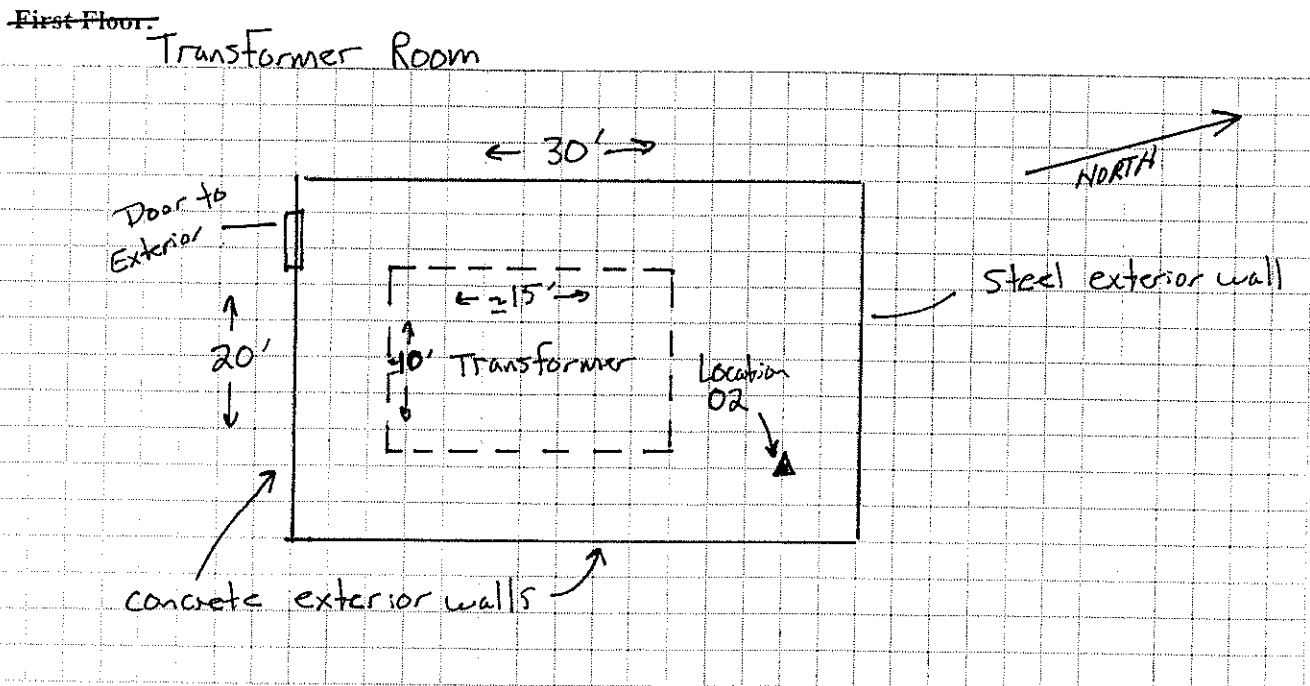 First Floor:
Transformer Room
← 30' →
NORTH
Door to
Exterior
Steel exterior wall
← ≈15' →
20'
≈10' Transformer
Location
02
concrete exterior walls